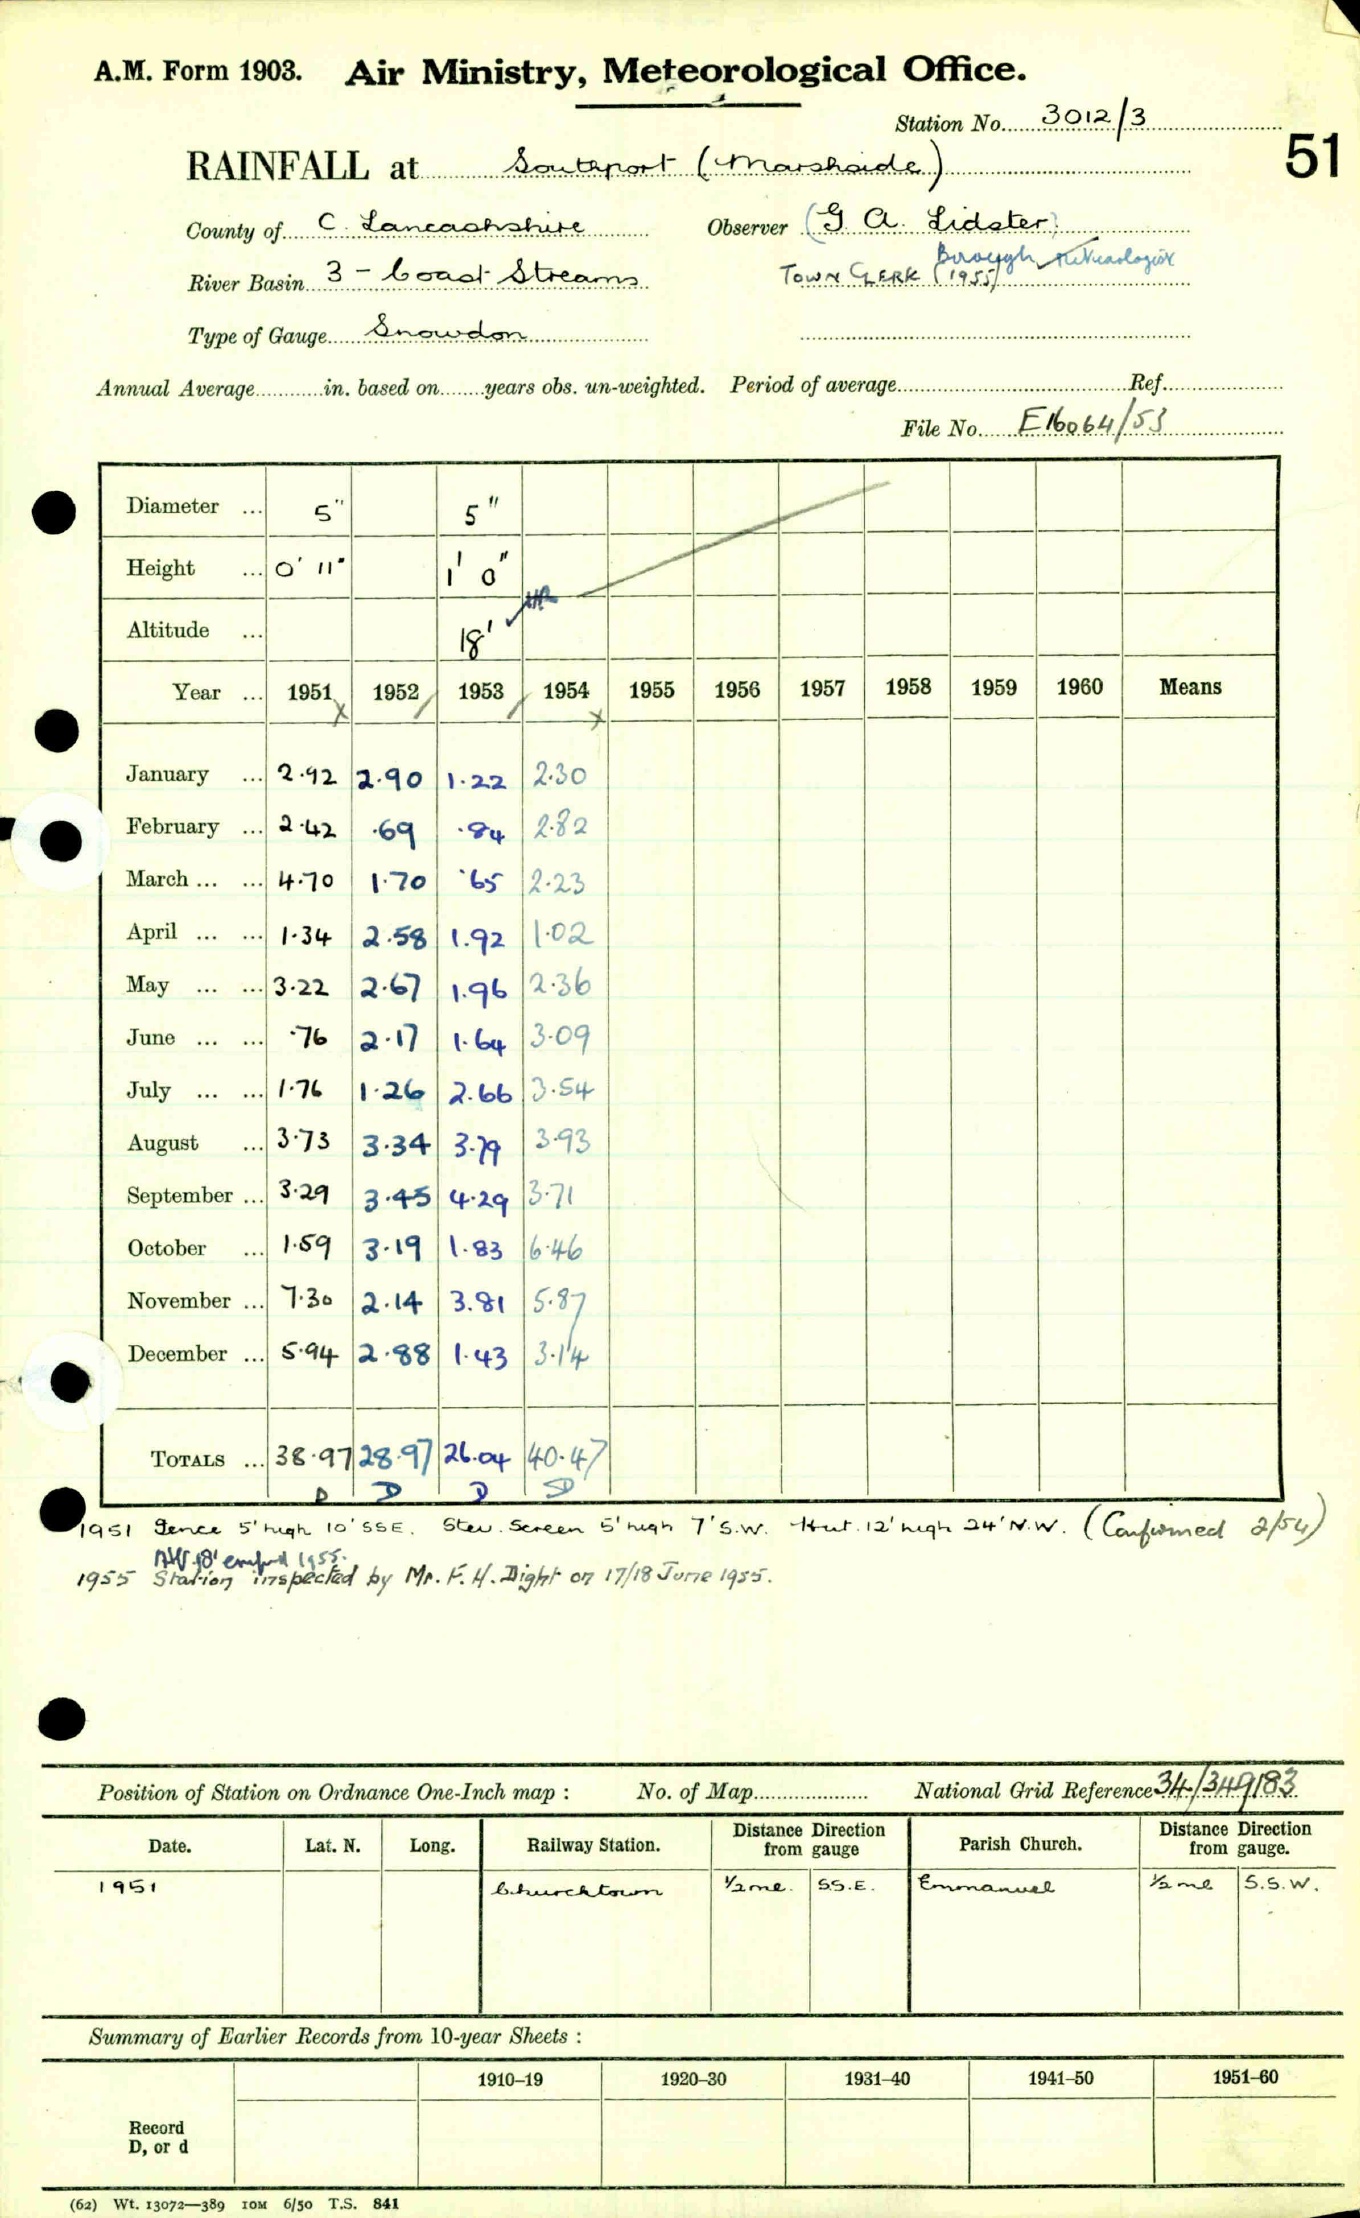 A.M. Form 1903. Air Ministry, Meteorological Office.
Station No. 3012/3
51
RAINFALL at Southport (Marshside)
County of C. Lancashshire Observer (G A. Lidster)
Borough Meteorologist
River Basin 3 - Coast Streams TOWN CLERK (1955)
Type of Gauge Snowdon
Annual Average in. based on years obs. un-weighted. Period of average Ref.
File No. E16064/53
Diameter ... 5" 5"
Height ... 0' 11" 1' 0"
Altitude ... 18'
Year ... 1951 1952 1953 1954 1955 1956 1957 1958 1959 1960 Means
January ... 2.92 2.90 1.22 2.30
February ... 2.42 .69 .84 2.82
March ... ... 4.70 1.70 .65 2.23
April ... ... 1.34 2.58 1.92 1.02
May ... ... 3.22 2.67 1.96 2.36
June ... ... .76 2.17 1.64 3.09
July ... ... 1.76 1.26 2.66 3.54
August ... 3.73 3.34 3.79 3.93
September ... 3.29 3.45 4.29 3.71
October ... 1.59 3.19 1.83 6.46
November ... 7.30 2.14 3.81 5.87
December ... 5.94 2.88 1.43 3.14
TOTALS ... 38.97 28.97 26.04 40.47
D D D D
1951 Fence 5' high 10' SSE. Stev. Screen 5' high 7' S.W. Hut. 12' high 24' N.W. (Confirmed 2/54)
18' 1955.
1955 Station inspected by Mr. F. H. Dight on 17/18 June 1955.
Position of Station on Ordnance One-Inch map : No. of Map National Grid Reference 34/349183
Date. Lat. N. Long. Railway Station. Distance Direction from gauge Parish Church. Distance Direction from gauge.
1951 Churchtown 1/2 me. SS.E. Emmanuel 1/2 me S.S.W.
Summary of Earlier Records from 10-year Sheets :
1910–19 1920–30 1931–40 1941–50 1951–60
Record
D, or d
(62) Wt. 13072—389 10M 6/50 T.S. 841